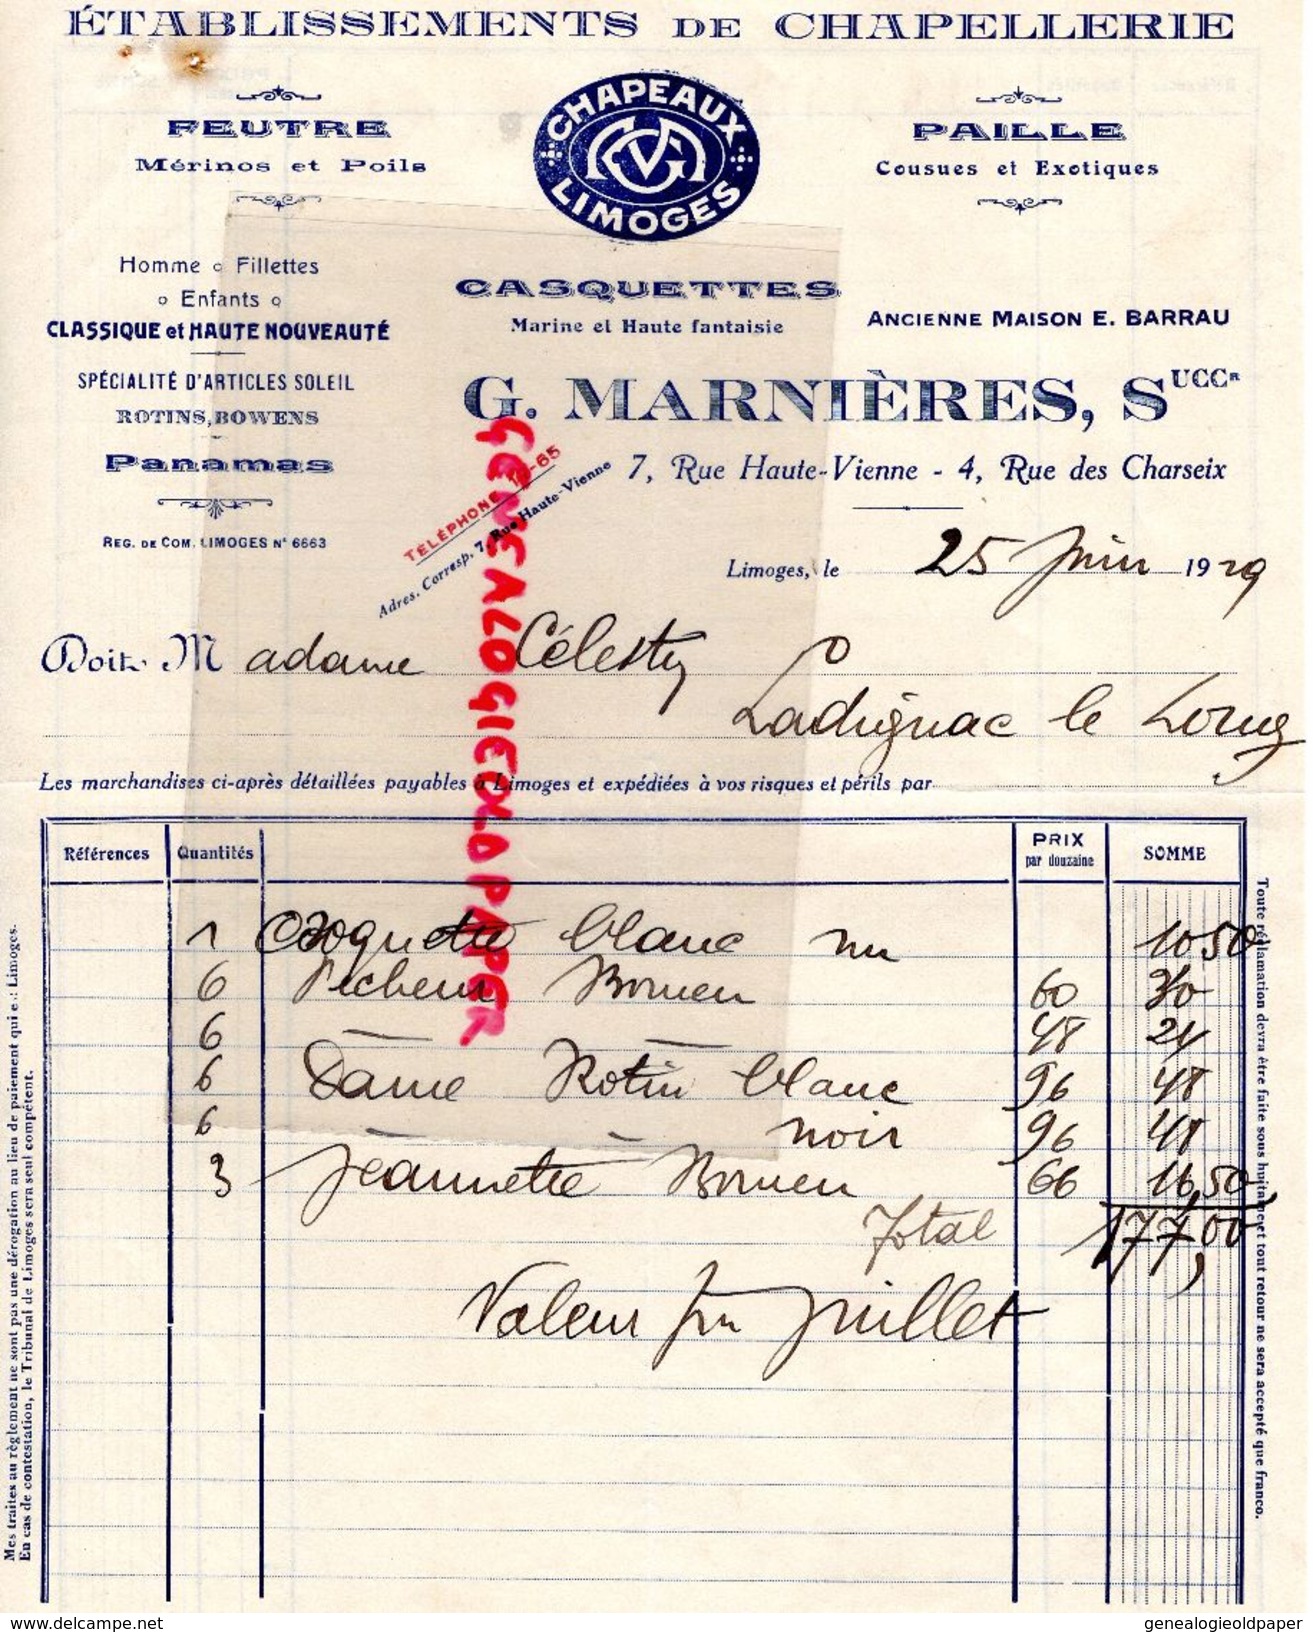 ÉTABLISSEMENTS DE CHAPELLERIE
FEUTRE
Mérinos et Poils
CHAPEAUX
LIMOGES
PAILLE
Cousues et Exotiques
Homme o Fillettes
o Enfants o
CLASSIQUE et HAUTE NOUVEAUTÉ
SPÉCIALITÉ D'ARTICLES SOLEIL
ROTINS, BOWENS
Panamas
REG. DE COM. LIMOGES N° 6663
CASQUETTES
Marine et Haute fantaisie
ANCIENNE MAISON E. BARRAU
G. MARNIÈRES, SUCCR
7, Rue Haute-Vienne - 4, Rue des Charseix
TÉLÉPHONE -65
Adres. Corresp. 7, Rue Haute-Vienne
GENEALOGIEOLDPAPER
Limoges, le 25 Juin 1929
Doit M adame Célesty
Ladignac le Long
Les marchandises ci-après détaillées payables à Limoges et expédiées à vos risques et périls par
Références Quantités PRIX par douzaine SOMME
1 blanc nu 10 50
6 Pecheur Bowen 60 30
6 — — 48 24
6 Dame Rotin blanc 96 48
6 — — noir 96 48
3 Jeannette Bowen 66 16,50
Total 177,00
Valeur fin Juillet
Mes traites au règlement ne sont pas une dérogation au lieu de paiement qui e : Limoges.
En cas de contestation, le Tribunal de Limoges sera seul compétent.
Toute réclamation devra être faite sous huitaine et tout retour ne sera accepté que franco.
www.delcampe.net
genealogieoldpaper